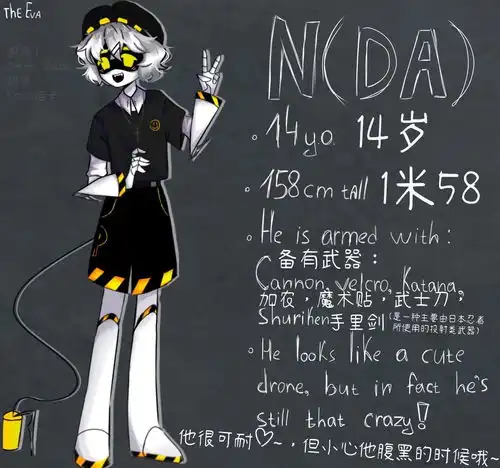 The Eva
N(DA)
14 y.o. 14岁
158 cm tall 1米58
He is armed with:
备有武器：
Cannon, velcro, Katana,
加农，魔术贴，武士刀，
Shuriken 手里剑 (是一种主要由日本忍者
所使用的投射类武器)
He looks like a cute
drone, but in fact he's
still that crazy!
他很可耐♡~，但小心他腹黑的时候哦~